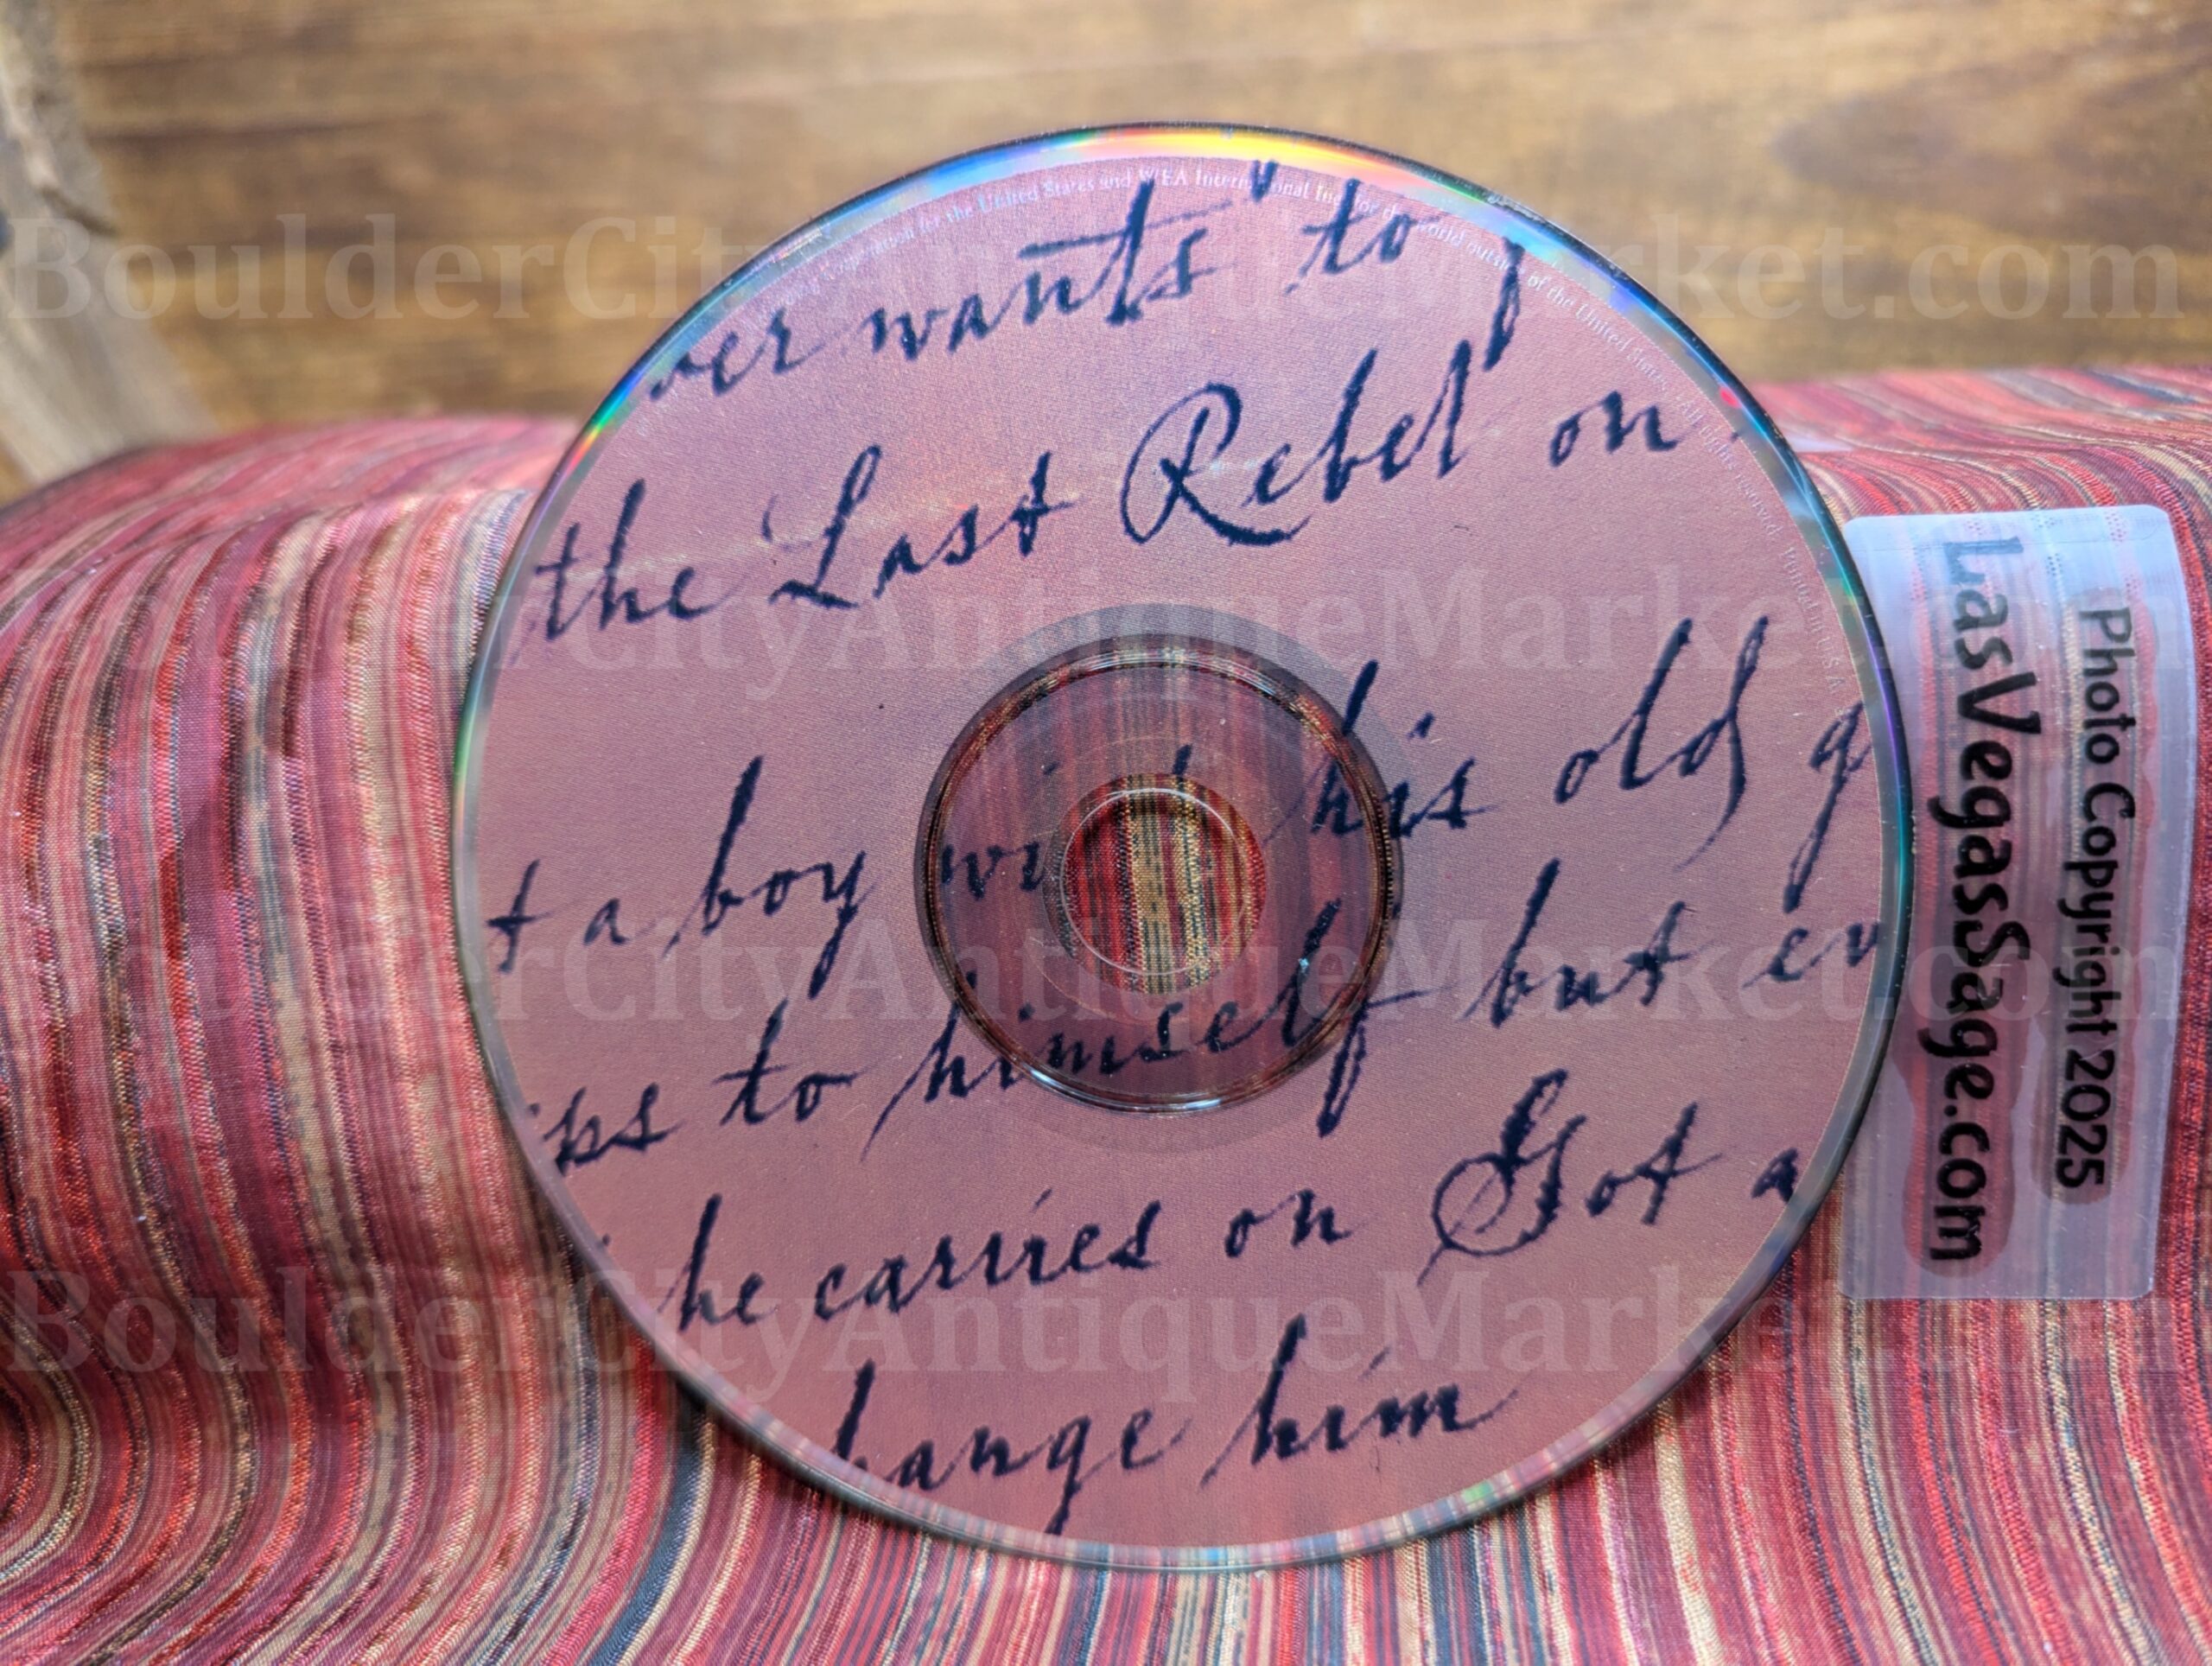 for the United States and WEA International Inc. for the world outside of the United States. All rights reserved. Printed in U.S.A.
ver wants" to
the Last Rebel on
t a boy his old g
to himself but ev
he carries on Got a
hange him
Photo Copyright 2025
LasVegasSage.com
BoulderCityAntiqueMarket.com
BoulderCityAntiqueMarket.com
BoulderCityAntiqueMarket.com
BoulderCityAntiqueMarket.com